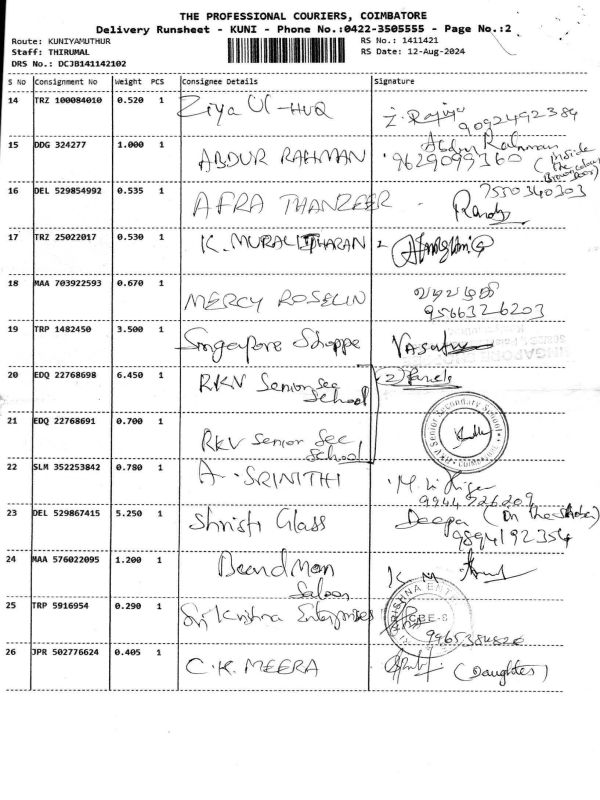 THE PROFESSIONAL COURIERS, COIMBATORE
Delivery Runsheet - KUNI - Phone No.:0422-3505555 - Page No.:2
Route: KUNIYAMUTHUR RS No.: 1411421
Staff: THIRUMAL RS Date: 12-Aug-2024
DRS No.: DCJB141142102
S No Consignment No Weight PCS Consignee Details Signature
14 TRZ 100084010 0.520 1 Ziya Ul-HUQ
9092492384
15 DDG 324277 1.000 1 ABDUR RAHMAN Abdur Rahman
9629099360 (inside the
16 DEL 529854992 0.535 1 AFRA THANZEER 7550340303
17 TRZ 25022017 0.530 1 K. MURALITHARAN
18 MAA 703922593 0.670 1 MERCY ROSELIN வடிவழகி
9566326203
19 TRP 1482450 3.500 1 Singapore Shoppe
20 EDQ 22768698 6.450 1 RKV Senior Sec School
21 EDQ 22768691 0.700 1 RKV Senior Sec School
22 SLM 352253842 0.780 1 A. SRINITHI
9944926209
23 DEL 529867415 5.250 1 Shristi Glass Deepa
9894192354
24 MAA 576022095 1.200 1 Beardman Saloon
25 TRP 5916954 0.290 1 Sri Krishna Enterprises
26 JPR 502776624 0.405 1 C.K. MEERA (Daughter)